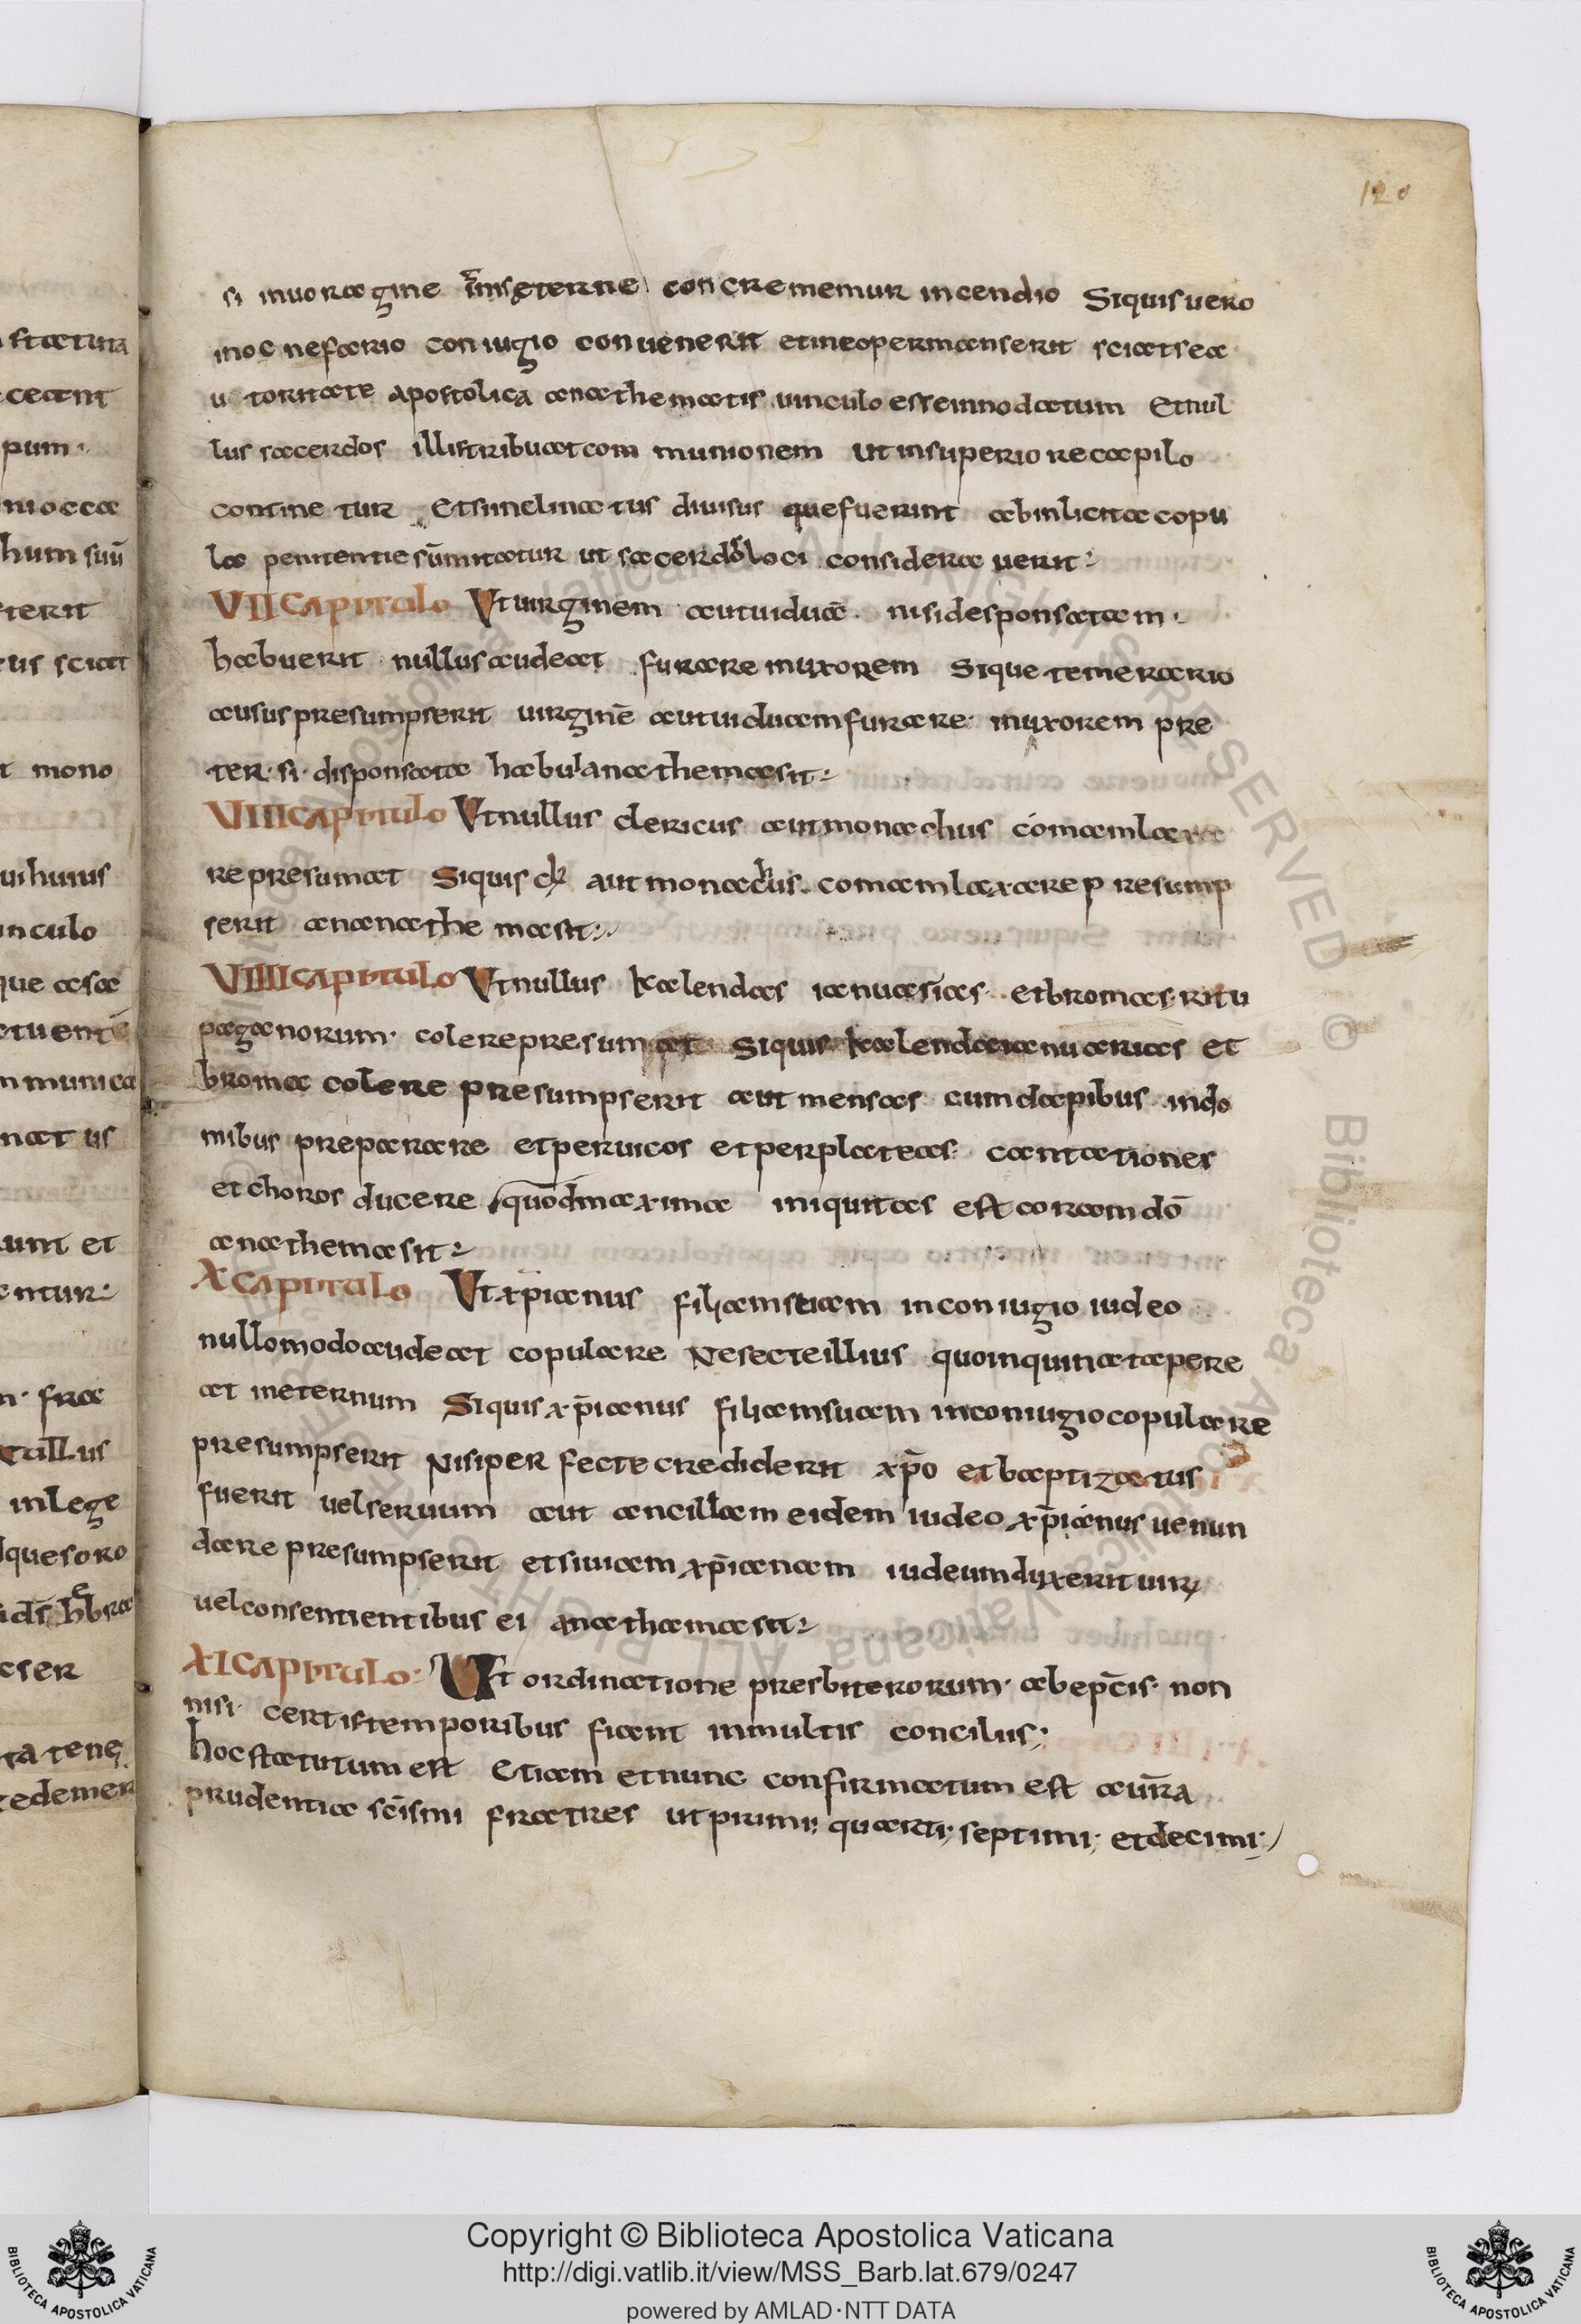 120
si inuoragine īnis ęterne concrememur incendio Siquis uero
inoc nefario coniugio conuenerit et ineo permanserit sciat se a
utoritate apostolica anathematis uinculo esse innodatum Et nul
lus sacerdos illis tribuat communionem ut in superiore capilo
continetur Et si nelinatus diuisus que fuerint ab inlicita copu
la penitentie sūmitatur ut sacerdos loci considerauerit
VII Capitulo Ut uirginem aut uiduā nisi desponsatam
habuerit nullus audeat furare in uxorem Sique temerario
ausus presumpserit uirginē aut uiduam furare in uxorem pre
ter si disponsata habuI anathema sit
VIII Capitulo Ut nullus clericus aut monachus comam laxa
re presumat Siquis cł aut monachus comam laxare presump
serit ananathema sit
VIIII Capitulo Ut nullus kalendas ianuasias et bromas ritu
paganorum colere presumat Siquis kalendas ianuarias et
broma colere presumpserit aut mensas cum dapibus in do
mibus preparare et per uicos et per plateas cantationes
et choros ducere quod maxima iniquitas est coram dō
anathema sit
X Capitulo Ut xp̄ianus filiam suam in coniugio iudeo
nullo modo audeat copulare Ne secte illius quoinquinata pere
at in eternum Siquis xp̄ianus filiam suam in coniugio copulare
presumpserit Nisi perfecte crediderit xp̄o et baptizatus
fuerit uel seruum aut ancillam eidem iudeo xp̄ianus uenun
dare presumpserit et si uiuam xp̄ianam iudeum duxerit uir
uel consentientibus ei anathama sit
XI Capitulo Ut ordinatione presbiterorum ab ep̄cis non
nisi certis temporibus fiant in multis conciliis
hoc statutum est Etiam et nunc confirmatum est a ur̄a
prudentia sc̄ismi fratres ut primi quarti septimi et decimi
Copyright © Biblioteca Apostolica Vaticana
http://digi.vatlib.it/view/MSS_Barb.lat.679/0247
powered by AMLAD·NTT DATA